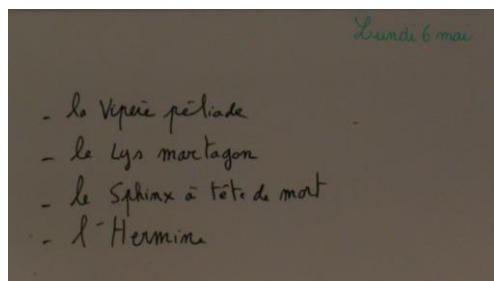 Lundi 6 mai
- la Vipère péliade
- le Lys martagon
- le Sphinx à tête de mort
- l'Hermine